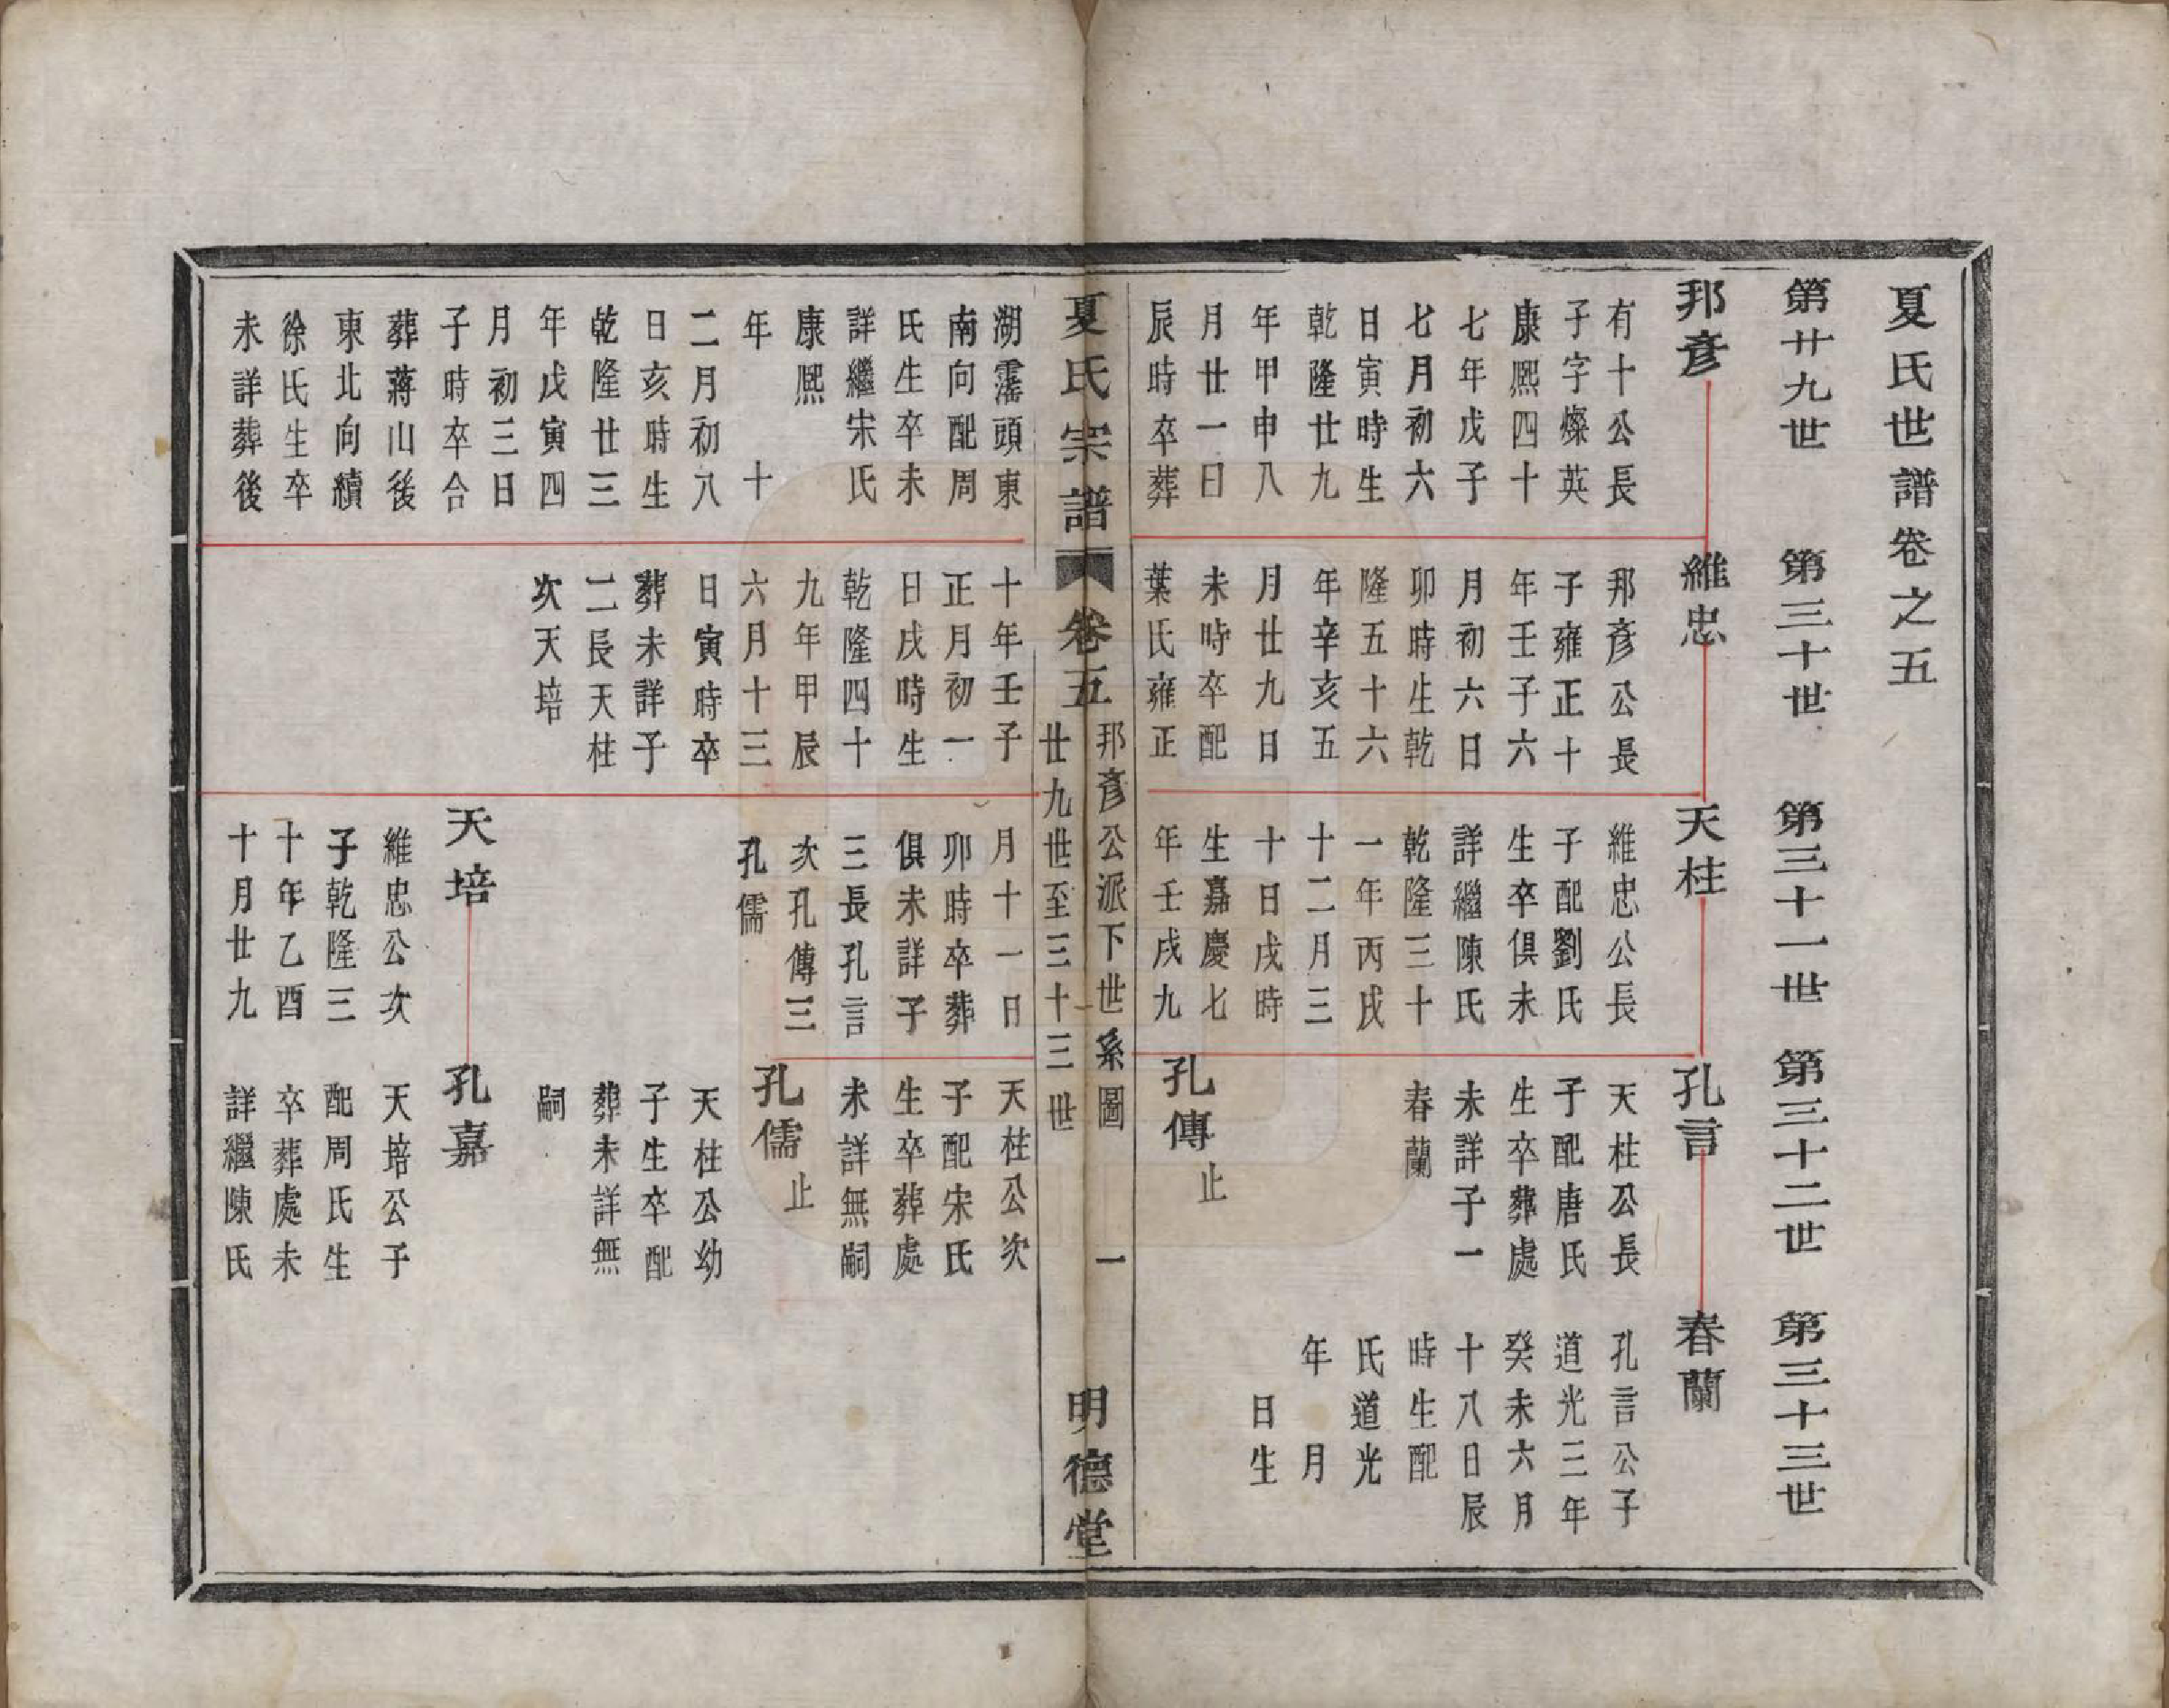 夏氏世譜卷之五
第廿九世
第三十世
第三十一世
第三十二世
第三十三世
邦彥
有十公長
子字燦英
康熈四十
七年戊子
七月初六
日寅時生
乾隆廿九
年甲申八
月廿一日
辰時卒葬
維忠
邦彥公長
子雍正十
年壬子六
月初六日
卯時生乾
隆五十六
年辛亥五
月廿九日
未時卒配
葉氏雍正
天柱
維忠公長
子配劉氏
生卒俱未
詳繼陳氏
乾隆三十
一年丙戌
十二月三
十日戌時
生嘉慶七
年壬戌九
孔言
天柱公長
子配唐氏
生卒葬處
未詳子一
春蘭
孔傳
止
春蘭
孔言公子
道光三年
癸未六月
十八日辰
時生配
氏道光
年 月
日生
夏氏宗譜 卷五
邦彥公派下世系圖
廿九世至三十三世
一
明德堂
湖霪頭東
南向配周
氏生卒未
詳繼宋氏
康熈
年 十
二月初八
日亥時生
乾隆廿三
年戊寅四
月初三日
子時卒合
葬蔣山後
東北向續
徐氏生卒
未詳葬後
十年壬子
正月初一
日戌時生
乾隆四十
九年甲辰
六月十三
日寅時卒
葬未詳子
二長天柱
次天培
月十一日
卯時卒葬
俱未詳子
三長孔言
次孔傳三
孔儒
天培
維忠公次
子乾隆三
十年乙酉
十月廿九
天柱公次
子配宋氏
生卒葬處
未詳無嗣
孔儒
止
天柱公幼
子生卒配
葬未詳無
嗣
孔嘉
天培公子
配周氏生
卒葬處未
詳繼陳氏